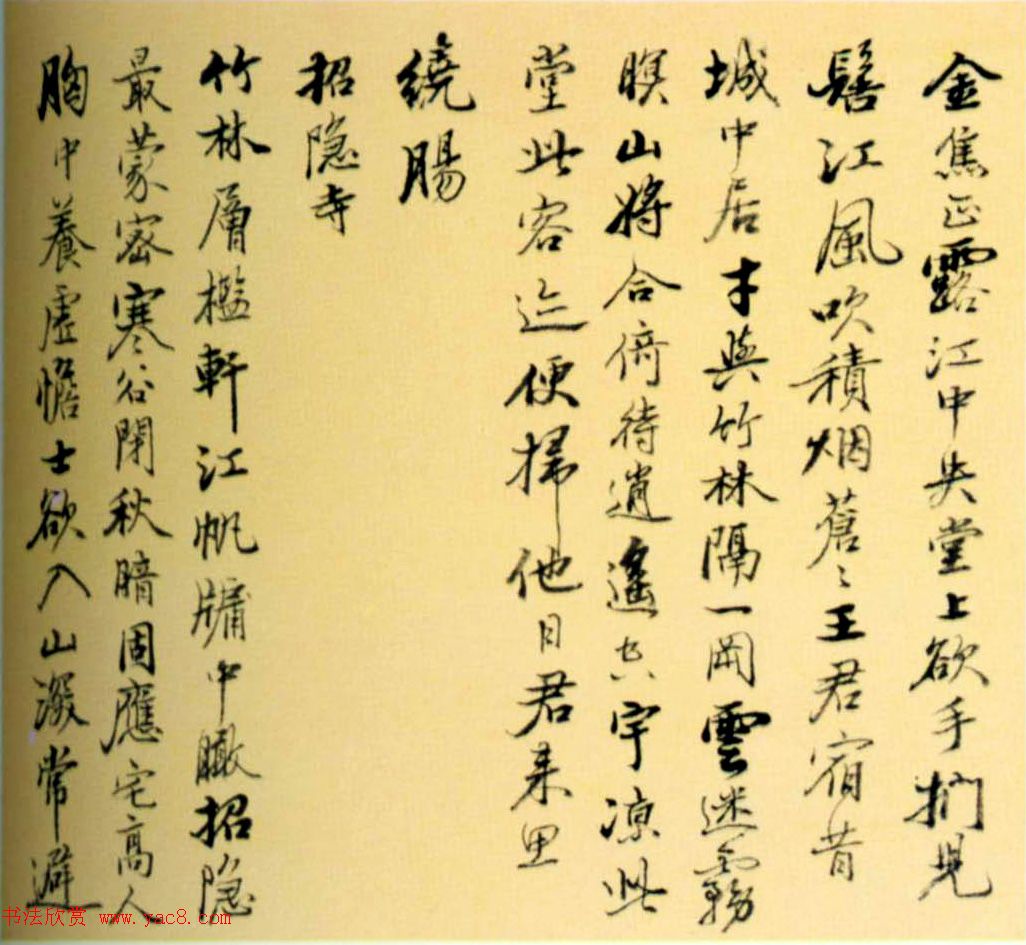 金焦正露江中央堂上欲手捫見
鬟江風吹積烟蒼〻王君宿昔
城中居才與竹林隔一岡雲迷霧
暝山將合倚待逍遙六宇涼此
堂此容迹便掃他日君来里
繞腸
招隐寺
竹林層檻軒江帆牖中瞰招隐
最蒙密寒谷閉秋暗固應宅高人
胸中養虛憺士欲入山深常避
书法欣赏 www.yac8.com